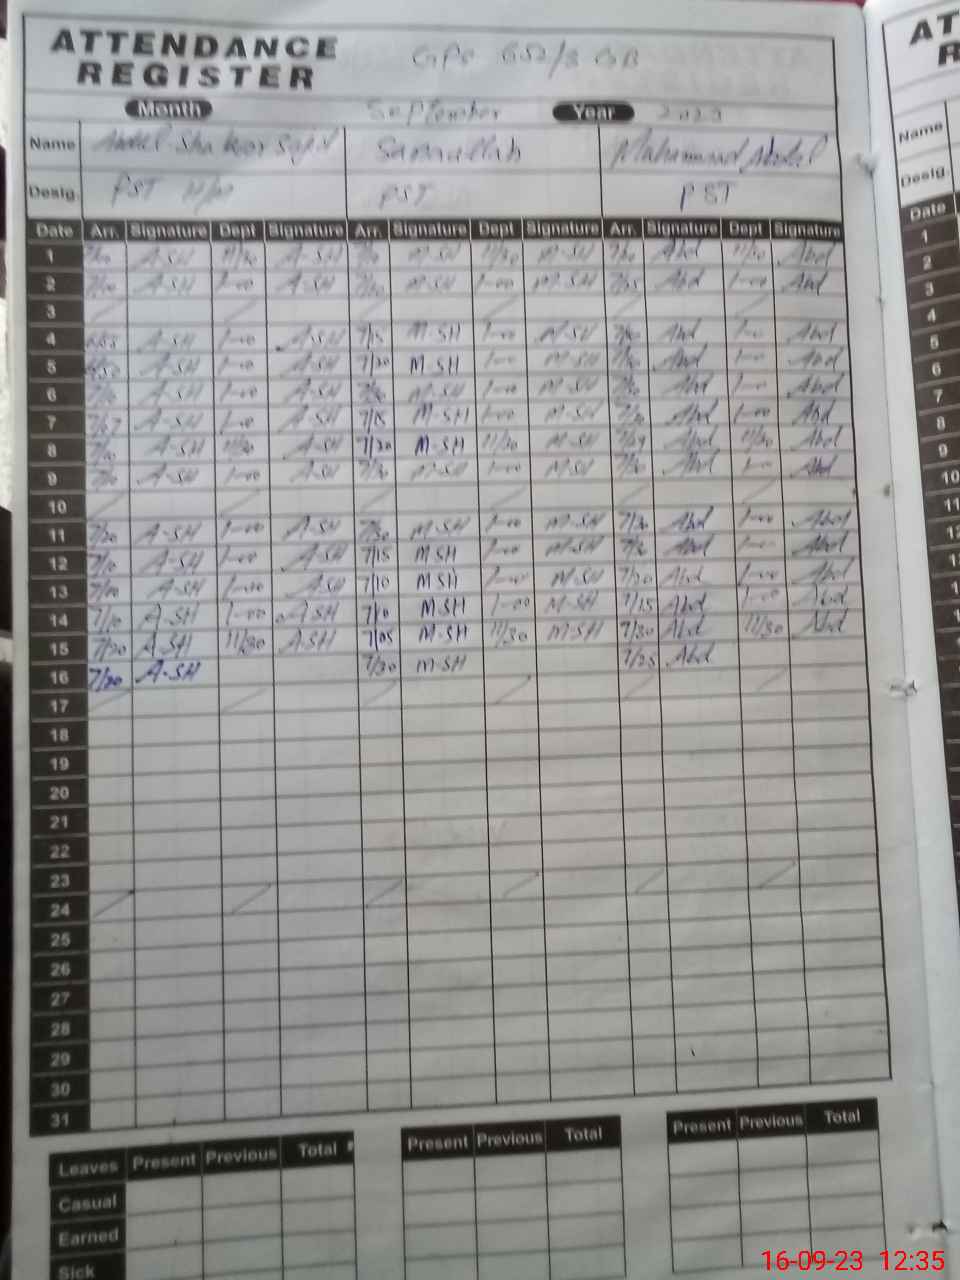 ATTENDANCE
REGISTER
GPS 652/3 GB
Month September Year 2023
Name Sanaullah Muhammad Abdul
Desig. PST PST PST
Date Arr. Signature Dept Signature Arr. Signature Dept Signature Arr. Signature Dept Signature
1 A-SH 11/30 A-SH M-SH 11/30 M-SH Abd 11/30 Abd
2 A-SH 1-00 A-SH M-SH 1-00 M-SH 7/25 Abd 1-00 Abd
3
4 A-SH 1-00 A-SH 7/15 M-SH 1-00 M-SH Abd 1-00 Abd
5 A-SH 1-00 A-SH 7/20 M-SH 1-00 M-SH Abd 1-00 Abd
6 A-SH 1-00 A-SH M-SH 1-00 M-SH Abd 1-00 Abd
7 A-SH 1-00 A-SH 7/15 M-SH 1-00 M-SH Abd 1-00 Abd
8 A-SH 11/30 A-SH 7/20 M-SH 11/30 M-SH Abd 11/30 Abd
9 7/10 A-SH 1-00 A-SH 7/30 M-SH 1-00 M-SH 7/30 Abd 1-00 Abd
10
11 7/20 A-SH 1-00 A-SH M-SH 1-00 M-SH 7/30 Abd 1-00 Abd
12 7/10 A-SH 1-00 A-SH 7/15 MSH 1-00 M-SH Abd 1-00 Abd
13 A-SH 1-00 A-SH 7/10 MSH 1-00 M-SH 7/20 Abd 1-00 Abd
14 7/10 A-SH 1-00 A-SH 7/10 M-SH 1-00 M-SH 7/15 Abd 1-00 Abd
15 7/20 A-SH 11/30 A-SH 7/05 M-SH 11/30 M-SH 7/30 Abd 11/30 Abd
16 7/20 A-SH 7/30 M-SH 7/25 Abd
17
18
19
20
21
22
23
24
25
26
27
28
29
30
31
Leaves Present Previous Total Present Previous Total Present Previous Total
Casual
Earned
Sick
Name
Desig.
Date
1
2
3
4
5
6
7
8
9
10
11
16-09-23 12:35